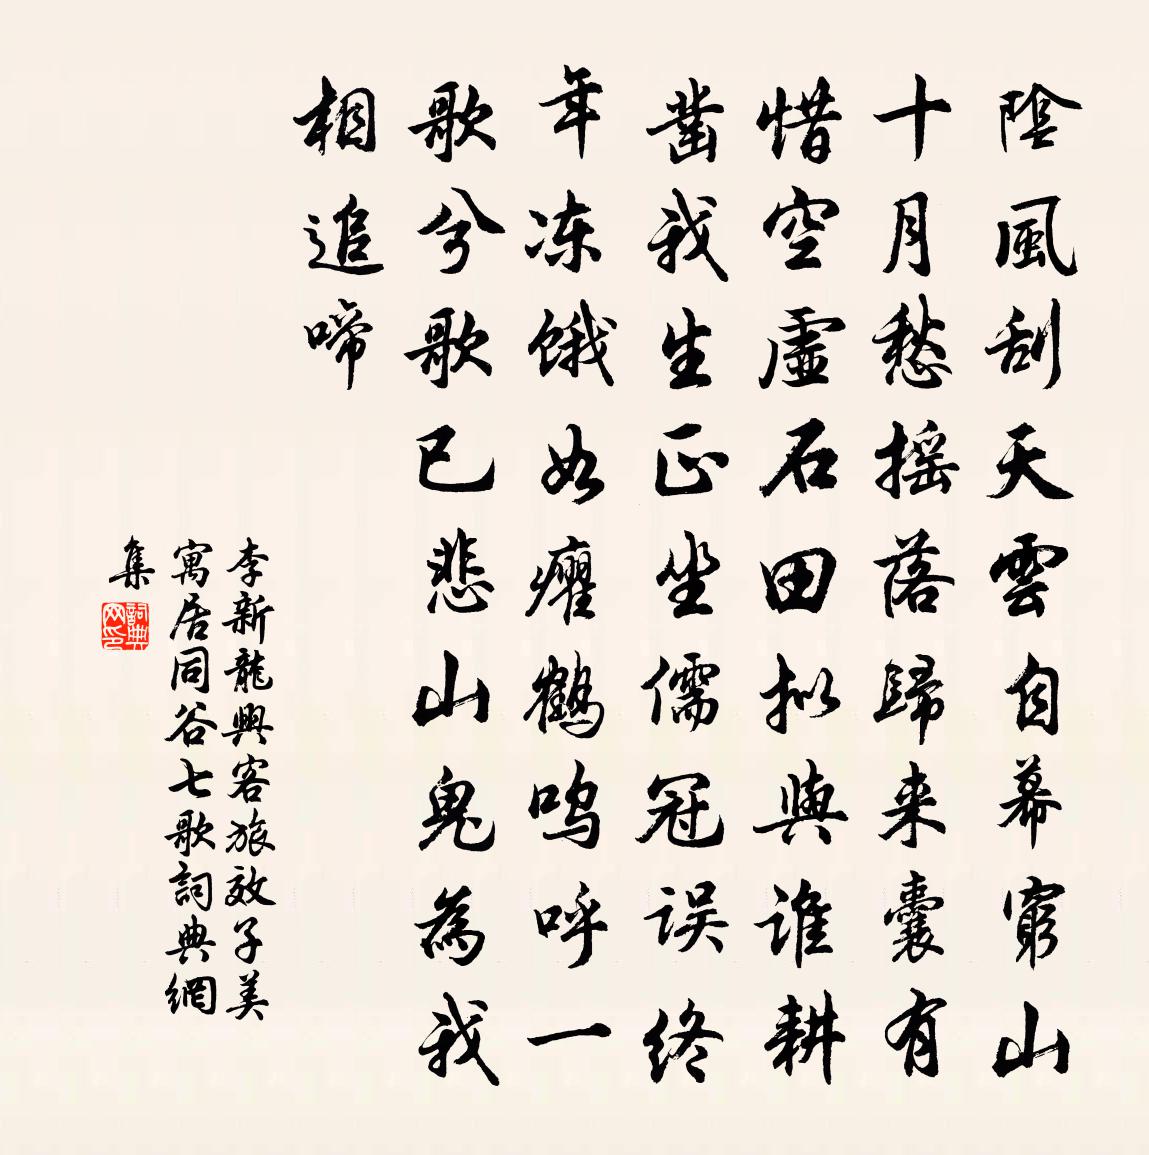 陰風刮天雲自幕窮山
十月愁摇落歸来囊有
惜空虛石田拟與誰耕
凿我生正坐儒冠误终
年冻饿如癯鶴鸣呼一
歌兮歌已悲山鬼為我
相追啼
李新龍興客旅效子美
寓居同谷七歌詞典網
集
詞典网印